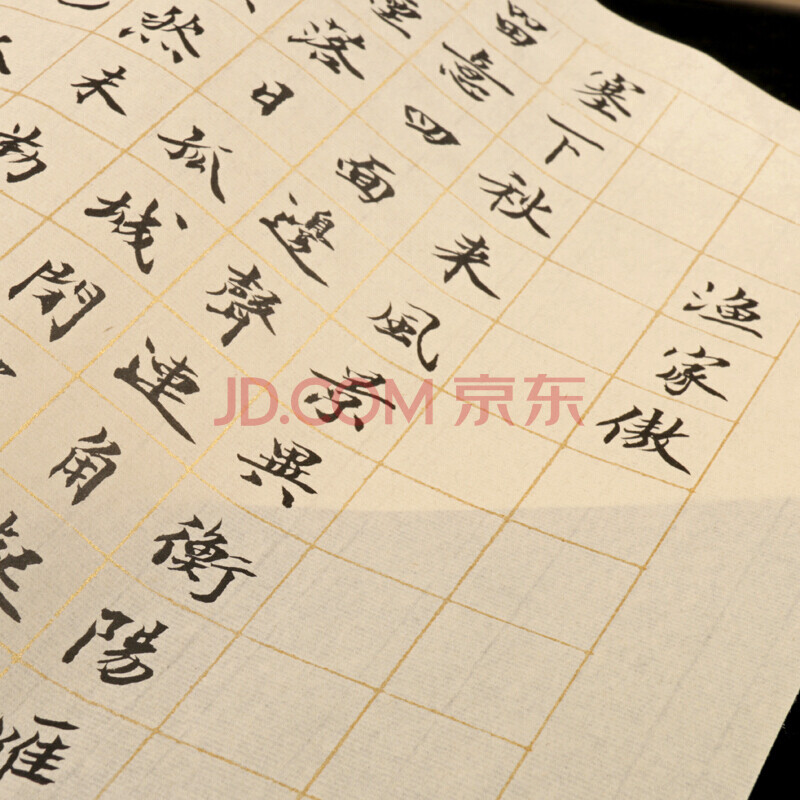 渔家傲
塞下秋来風景異衡陽雁
留意四面邊聲連角起
煙落日孤城閉
然未勒
JD.COM 京东